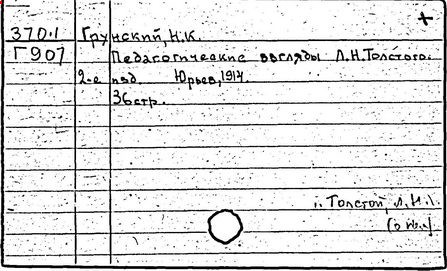 +
370.1 Грунский, Н.К.
Г907 Педагогические взгляды Л.Н.Толстого.
2-е изд. Юрьев, 1914
36стр.
1. Толстой, Л.Н.
(о нем)